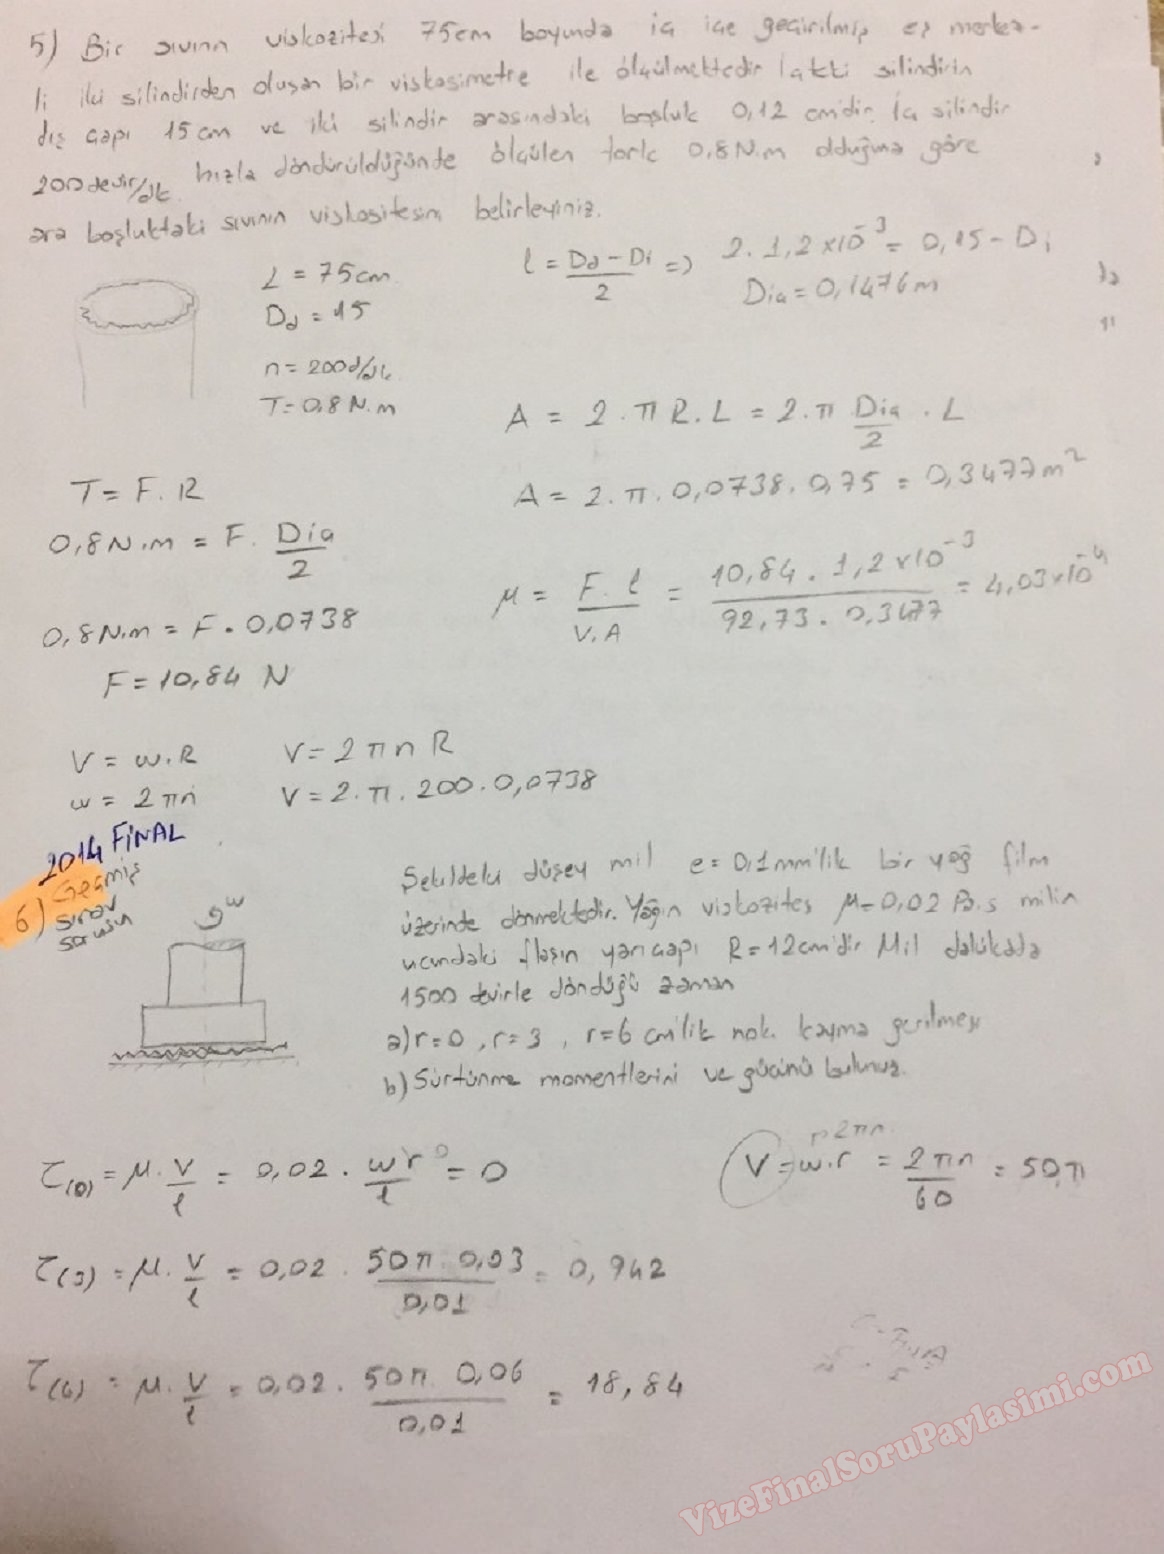 5) Bir sıvının viskozitesi 75cm boyunda iç içe geçirilmiş eş merkez-
li iki silindirden oluşan bir viskosimetre ile ölçülmektedir İçteki silindirin
dış çapı 15cm ve iki silindir arasındaki boşluk 0,12 cm'dir. İç silindir
200devir/dk hızla döndürüldüğünde ölçülen tork 0,8N.m olduğuna göre
ara boşluktaki sıvının viskositesini belirleyiniz.
L = 75cm
Dd = 15
n = 200d/dk
T = 0,8 N.m
l = Dd - Di / 2 => 2. 1,2x10^-3 = 0,15 - Di
Dia = 0,1476m
A = 2.π R.L = 2.π Dia/2 . L
A = 2.π. 0,0738. 0,75 = 0,3477m²
T = F.R
0,8N.m = F. Dia/2
0,8N.m = F. 0,0738
F = 10,84 N
μ = F.l / V.A = 10,84 . 1,2x10^-3 / 92,73 . 0,3477 = 4,03x10^-4
V = w.R V = 2πnR
w = 2πn V = 2.π.200.0,0738
2014 FİNAL
6) Geçmiş
sınav
sorusu
w
Şekildeki düşey mil e = 0,1mm'lik bir yağ film
üzerinde dönmektedir. Yağın viskozites μ=0,02 Pa.s milin
ucundaki flaşın yarıçapı R=12cm'dir Mil dakikada
1500 devirle döndüğü zaman
a) r=0 , r=3 , r=6 cm'lik nok. kayma gerilmesi
b) Sürtünme momentlerini ve gücünü bulunuz.
τ(0) = μ. V/l = 0,02 . wr/l = 0
0
2πn
V = w.r = 2πn/60 = 50π
τ(3) = μ. V/l = 0,02 . 50π 0,03 / 0,01 = 0,942
τ(6) = μ. V/l = 0,02 . 50π 0,06 / 0,01 = 18,84
VizeFinalSoruPaylasimi.com